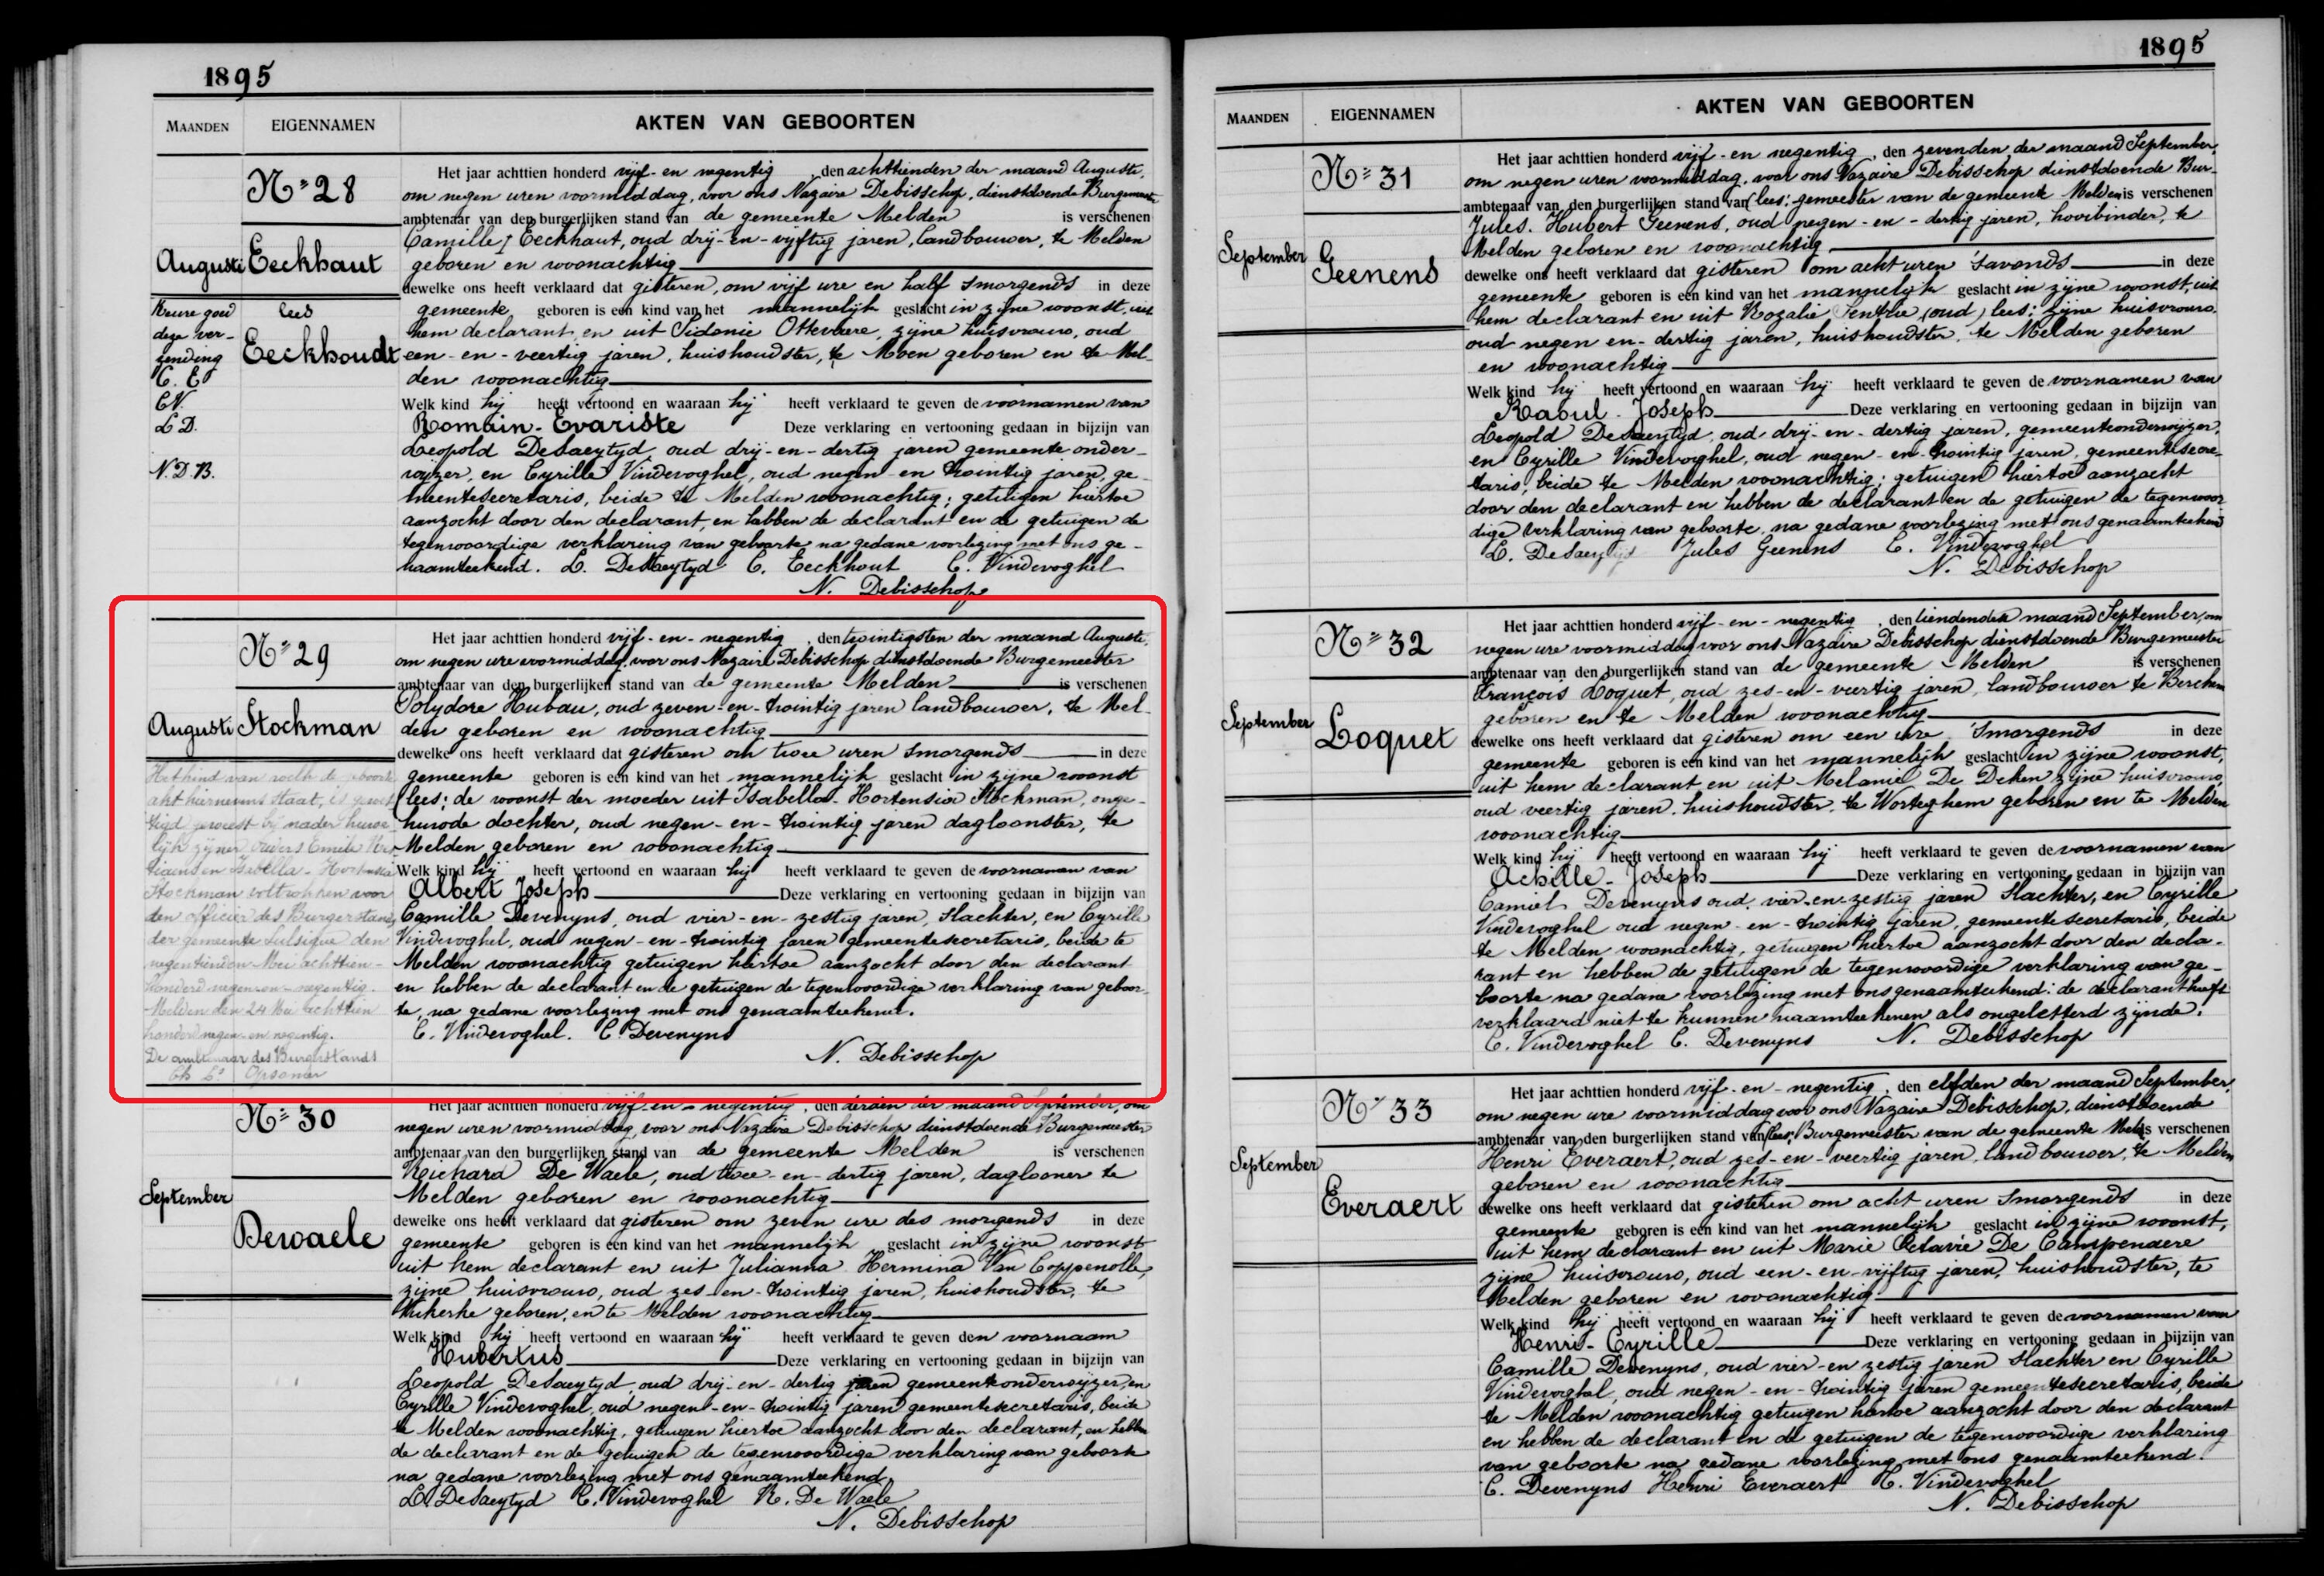 1895
MAANDEN EIGENNAMEN AKTEN VAN GEBOORTEN
N° 28
Augusti
Eeckhaut
lees
Eeckhoudt
Keure goed
deze ver-
zending
C. E
C.V.
L D.
N. D. B.
Het jaar achttien honderd vijf-en negentig, den achttienden der maand Augusti,
om negen uren voormiddag, voor ons Nazaire Debisschop, dienstdoende Burgemeester
ambtenaar van den burgerlijken stand van de gemeente Melden is verschenen
Camille Eeckhaut, oud drij-en-vijftig jaren, landbouwer, te Melden
geboren en woonachtig
dewelke ons heeft verklaard dat gisteren, om vijf ure en half smorgends in deze
gemeente geboren is een kind van het mannelijk geslacht in zijne woonst, uit
hem declarant, en uit Sidonie Ottevaere, zijne huisvrouw, oud
een-en-veertig jaren, huishoudster, te Moen geboren en te Mel-
den woonachtig
Welk kind hij heeft vertoond en waaraan hij heeft verklaard te geven de voornamen van
Romain-Evariste Deze verklaring en vertooning gedaan in bijzijn van
Leopold DeSaeytyd, oud drij-en-dertig jaren gemeente onder-
wijzer, en Cyrille Vindevoghel, oud negen-en twintig jaren, ge-
meentesecretaris, beide te Melden woonachtig; getuigen hiertoe
aanzocht door den declarant, en hebben de declarant en de getuigen de
tegenwoordige verklaring van geboorte na gedane voorlezing met ons ge-
naamteekend. L. DeSaeytyd C. Eeckhout C. Vindevoghel
N. Debisschop
N° 29
Augusti
Stockman
Het kind van welk de geboorte
akt hiernevens staat, is gewet-
tigd geweest bij nader huwe-
lijk zijner ouders Emile
en Isabella-Hortensia
Stockman voltrokken voor
den officier des Burgerstands
der gemeente Sulsique den
negentienden Mei achttien-
honderd negen-en-negentig.
Melden den 24 Mei achttien
honderd negen-en negentig.
De ambtenaar des Burgerstands
Opsomer
Het jaar achttien honderd vijf-en-negentig, den twintigsten der maand Augusti,
om negen ure voormiddag, voor ons Nazaire Debisschop dienstdoende Burgemeester
ambtenaar van den burgerlijken stand van de gemeente Melden is verschenen
Polydore Hubau, oud zeven-en-twintig jaren landbouwer, te Mel-
den geboren en woonachtig
dewelke ons heeft verklaard dat gisteren om twee uren smorgends in deze
gemeente geboren is een kind van het mannelijk geslacht in zijne woonst
(lees: de woonst der moeder uit Isabella-Hortensia Stockman, onge-
huwde dochter, oud negen-en-twintig jaren dagloonster, te
Melden geboren en woonachtig
Welk kind hij heeft vertoond en waaraan hij heeft verklaard te geven de voornamen van
Albert Joseph Deze verklaring en vertooning gedaan in bijzijn van
Camille Devenyns, oud vier-en-zestig jaren, slachter, en Cyrille
Vindevoghel, oud negen-en-twintig jaren gemeentesecretaris, beide te
Melden woonachtig getuigen hiertoe aanzocht door den declarant
en hebben de declarant en de getuigen de tegenwoordige verklaring van geboor-
te, na gedane voorlezing met ons genaamteekend.
C. Vindevoghel. C. Devenyns
N. Debisschop
N° 30
September
Dewaele
Het jaar achttien honderd vijf-en-negentig, den derden der maand September, om
negen uren voormiddag, voor ons Nazaire Debisschop dienstdoende Burgemeester
ambtenaar van den burgerlijken stand van de gemeente Melden is verschenen
Richard De Waele, oud twee-en-dertig jaren, daglooner te
Melden geboren en woonachtig
dewelke ons heeft verklaard dat gisteren om zeven ure des morgends in deze
gemeente geboren is een kind van het mannelijk geslacht in zijne woonst
uit hem declarant en uit Julianna Hermina Van Coppenolle,
zijne huisvrouw, oud zes-en-twintig jaren, huishoudster, te
Nukerke geboren, en te Melden woonachtig
Welk kind hij heeft vertoond en waaraan hij heeft verklaard te geven den voornaam
Hubertus Deze verklaring en vertooning gedaan in bijzijn van
Leopold DeSaeytyd, oud drij-en-dertig jaren gemeenteonderwijzer, en
Cyrille Vindevoghel, oud negen-en-twintig jaren gemeentesecretaris, beide
te Melden woonachtig, getuigen hiertoe aanzocht door den declarant, en hebben
de declarant en de getuigen de tegenwoordige verklaring van geboorte
na gedane voorlezing met ons genaamteekend.
L. DeSaeytyd C. Vindevoghel R. De Waele
N. Debisschop
1895
MAANDEN EIGENNAMEN AKTEN VAN GEBOORTEN
N° 31
September
Geenens
Het jaar achttien honderd vijf-en negentig, den zevenden der maand September,
om negen uren voormiddag, voor ons Nazaire Debisschop dienstdoende Bur-
ambtenaar van den burgerlijken stand van (lees: gemeester van de gemeente Melden is verschenen
Jules-Hubert Geenens, oud negen-en-dertig jaren, hooibinder, te
Melden geboren en woonachtig
dewelke ons heeft verklaard dat gisteren om acht uren 'savonds in deze
gemeente geboren is een kind van het mannelijk geslacht in zijne woonst, uit
hem declarant en uit Rozalie (oud) lees: zijne huisvrouw
oud negen en-dertig jaren, huishoudster, te Melden geboren
en woonachtig
Welk kind hij heeft vertoond en waaraan hij heeft verklaard te geven de voornamen van
Raoul-Joseph Deze verklaring en vertooning gedaan in bijzijn van
Leopold DeSaeytyd, oud drij-en-dertig jaren, gemeenteonderwijzer,
en Cyrille Vindevoghel, oud negen-en-twintig jaren, gemeentesecre-
taris, beide te Melden woonachtig; getuigen hiertoe aanzocht
door den declarant en hebben de declarant en de getuigen de tegenwoor
dige verklaring van geboorte, na gedane voorlezing met ons genaamteekend
L. DeSaeytyd Jules Geenens C. Vindevoghel
N. Debisschop
N° 32
September
Loquet
Het jaar achttien honderd vijf-en-negentig, den tienden der maand September, om
negen ure voormiddag voor ons Nazaire Debisschop dienstdoende Burgemeester
ambtenaar van den burgerlijken stand van de gemeente Melden is verschenen
François Loquet, oud zes-en-veertig jaren, landbouwer te Berchem
geboren en te Melden woonachtig
dewelke ons heeft verklaard dat gisteren om een ure 'smorgends in deze
gemeente geboren is een kind van het mannelijk geslacht in zijne woonst,
uit hem declarant en uit Melanie De Deken zijne huisvrouw
oud veertig jaren, huishoudster, te Worteghem geboren en te Melden
woonachtig
Welk kind hij heeft vertoond en waaraan hij heeft verklaard te geven de voornamen van
Achille-Joseph Deze verklaring en vertooning gedaan in bijzijn van
Camiel Devenyns oud vier-en-zestig jaren slachter, en Cyrille
Vindevoghel oud negen-en-twintig jaren, gemeentesecretaris, beide
te Melden woonachtig, getuigen hiertoe aanzocht door den decla-
rant en hebben de getuigen de tegenwoordige verklaring van ge-
boorte na gedane voorlezing met ons genaamteekend: de declarant heeft
verklaard niet te kunnen naamteekenen als ongeletterd zijnde.
C. Vindevoghel C. Devenyns N. Debisschop
N° 33
September
Everaert
Het jaar achttien honderd vijf-en-negentig, den elfden der maand September,
om negen ure voormiddag voor ons Nazaire Debisschop, dienstdoende
ambtenaar van den burgerlijken stand van (lees: Burgemeester van de gemeente Melden is verschenen
Henri Everaert, oud zes-en-veertig jaren, landbouwer, te Melden
geboren en woonachtig
dewelke ons heeft verklaard dat gisteren om acht uren smorgends in deze
gemeente geboren is een kind van het mannelijk geslacht in zijne woonst,
uit hem declarant en uit Marie Octavie De Campenaere
zijne huisvrouw, oud een-en-vijftig jaren, huishoudster, te
Melden geboren en woonachtig
Welk kind hij heeft vertoond en waaraan hij heeft verklaard te geven de voornamen van
Henri-Cyrille Deze verklaring en vertooning gedaan in bijzijn van
Camille Devenyns, oud vier-en zestig jaren slachter en Cyrille
Vindevoghel, oud negen-en-twintig jaren gemeentesecretaris, beide
te Melden woonachtig getuigen hiertoe aanzocht door den declarant
en hebben de declarant en de getuigen de tegenwoordige verklaring
van geboorte na gedane voorlezing met ons genaamteekend.
C. Devenyns Henri Everaert C. Vindevoghel
N. Debisschop